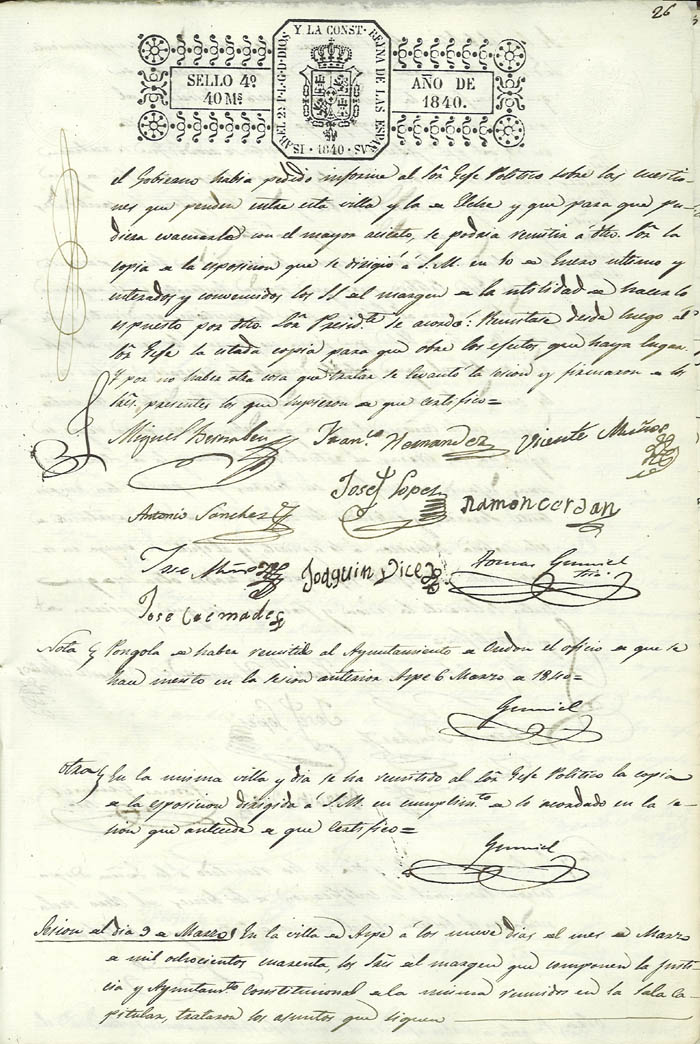 26
SELLO 4º
40 Ms
ISABEL 2ª P. L. G. D. DIOS Y LA CONST. REINA DE LAS ESPAÑAS · 1840 ·
AÑO DE
1840.
el Gobierno habia pedido informe al Sòr Gefe Politico sobre las cuestio-
nes que penden entre esta villa y la de Elche y que para que pu-
diera evacuarla con el mayor acierto, se podria remitir á dho. Sòr la
copia de la esposicion que se dirigió á S.M. en 10 de Enero ultimo y
enterados y convenidos los SS del margen de la utilidad de hacer lo
espuesto por dho. Sòr Presidte. se acordó: Remitase desde luego al
Sòr Gefe la citada copia para que obre los efectos que haya lugar.
Y por no haber otra cosa que tratar se levantó la sesion y firmaron de los
Sres. presentes los que supieron de que certifico=
Miguel Bernabeu Franco. Hernandez Vicente Muñoz
Antonio Sanchez Josef Lopez Ramon cerdan
Jose Muñoz Joaquin Vicedo Tomas Gumiel
Srio.
Jose Caémades
Nota Pongola de haber remitido al Ayuntamiento de Ondon el oficio de que se
hace merito en la sesion anterior Aspe 6 Marzo de 1840=
Gumiel
Otra En la misma villa y dia se ha remitido al Sòr Gefe Politico la copia
de la esposicion dirigida á S.M. en cumplimto. de lo acordado en la se-
sion que antecede de que certifico=
Gumiel
Sesion del dia 9 de Marzo En la villa de Aspe á los nueve dias del mes de Marzo
de mil ochocientos cuarenta, los Sres del margen que componen la Justi-
cia y Ayuntamto. constitucional de la misma reunidos en la Sala Ca-
pitular, trataron los asuntos que siguen